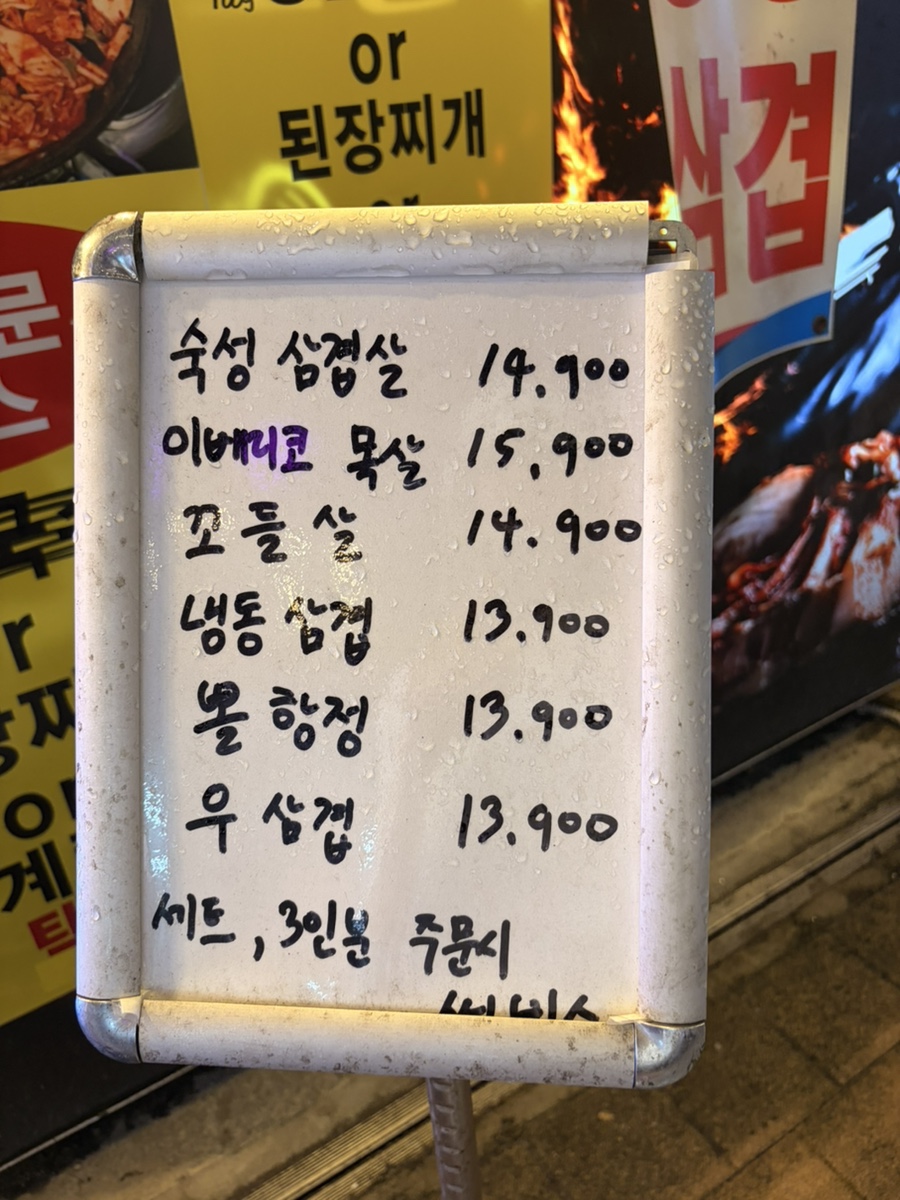 100g
or
된장찌개
삼겹
문
스
숙성 삼겹살 14.900
이베리코 목살 15.900
꼬들살 14.900
냉동 삼겹 13.900
뽈 항정 13.900
우 삼겹 13.900
세트, 3인분 주문시
서비스
or